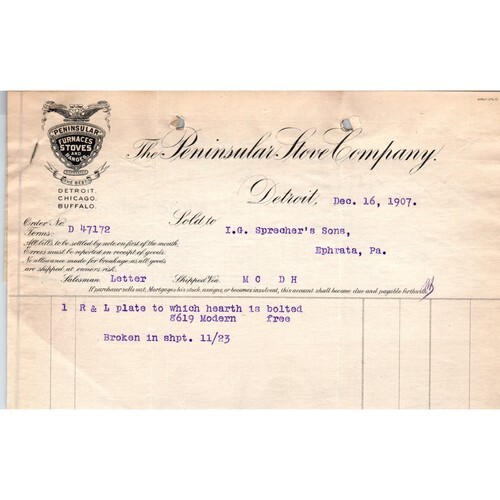 "PENINSULAR"
FURNACES
STOVES
AND
RANGES
THE BEST
DETROIT.
CHICAGO.
BUFFALO.
The Peninsular Stove Company.
Detroit, Dec. 16, 1907.
Order No D 47172
Sold to I.G. Sprecher's Sons,
Ephrata, Pa.
Terms:
All bills to be settled by note on first of the month.
Errors must be reported on receipt of goods.
No allowance made for breakage as all goods
are shipped at owners risk.
Salesman Letter Shipped Via M C D H
If purchaser sells out, Mortgages his stock, assigns, or becomes insolvent, this account shall become due and payable forthwith.
1 R & L plate to which hearth is bolted
8619 Modern free
Broken in shpt. 11/23